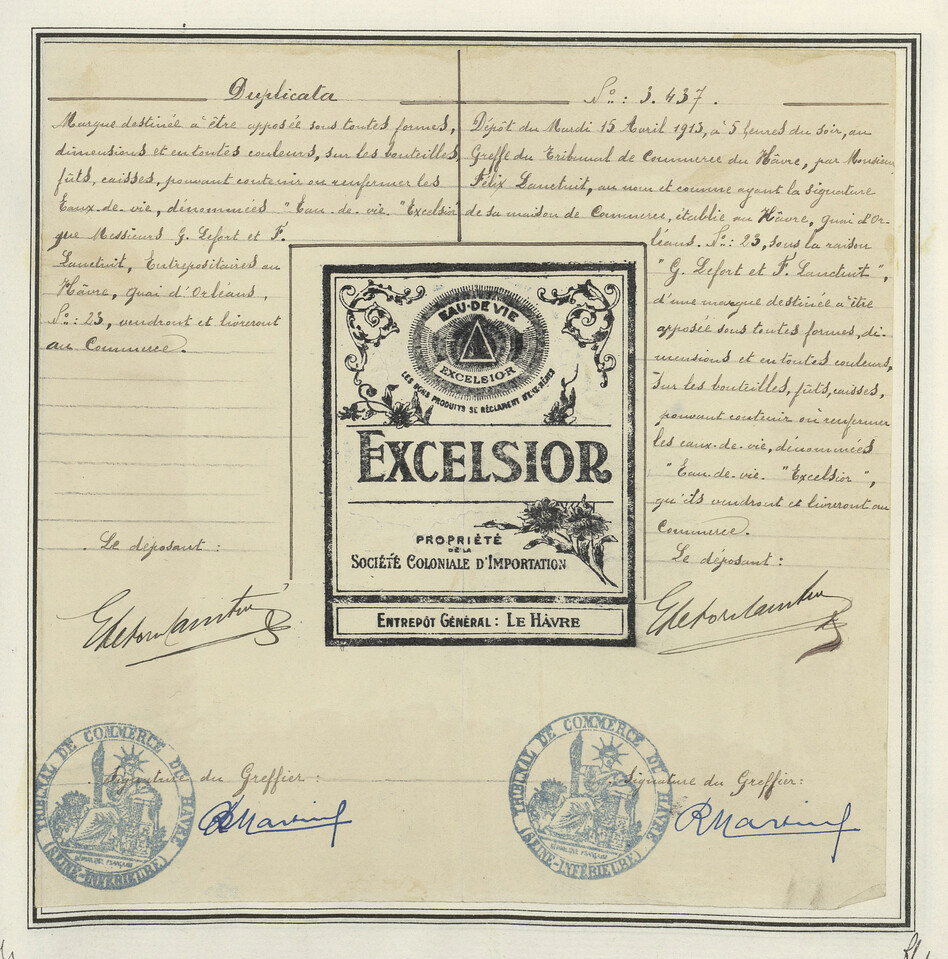 Duplicata
Marque destinée à être apposée sous toutes formes,
dimensions et en toutes couleurs, sur les bouteilles,
fûts, caisses, pouvant contenir ou renfermer les
Eaux-de-vie, dénommées "Eau-de-vie "Excelsior"
que Messieurs G. Lefort et F.
Lanctuit, Entrepositaires au
Hâvre, Quai d'Orléans,
No: 23, vendront et livreront
au Commerce.
Le déposant :
No: 3.437.
Dépôt du Mardi 15 Avril 1913, à 5 heures du soir, au
Greffe du Tribunal de Commerce du Hâvre, par Monsieur
Félix Lanctuit, au nom et comme ayant la signature
de sa maison de Commerce, établie au Hâvre, Quai d'Or-
léans. No: 23, sous la raison
"G. Lefort et F. Lanctuit",
d'une marque destinée à être
apposée sous toutes formes, di-
mensions et en toutes couleurs,
sur les bouteilles, fûts, caisses,
pouvant contenir ou renfermer
les eaux-de-vie, dénommées
"Eau-de-vie. "Excelsior",
qu'ils vendront et livreront au
Commerce.
Le déposant :
EAU-DE-VIE
EXCELSIOR
LES BONS PRODUITS SE RÉCLAMENT D'EUX-MÊMES
EXCELSIOR
PROPRIÉTÉ
DE LA
SOCIÉTÉ COLONIALE D'IMPORTATION
ENTREPÔT GÉNÉRAL : LE HÂVRE
Signature du Greffier :
TRIBUNAL DE COMMERCE DU HAVRE
(SEINE-INFÉRIEURE)
RÉPUBLIQUE FRANÇAISE
Signature du Greffier :
TRIBUNAL DE COMMERCE DU HAVRE
(SEINE-INFÉRIEURE)